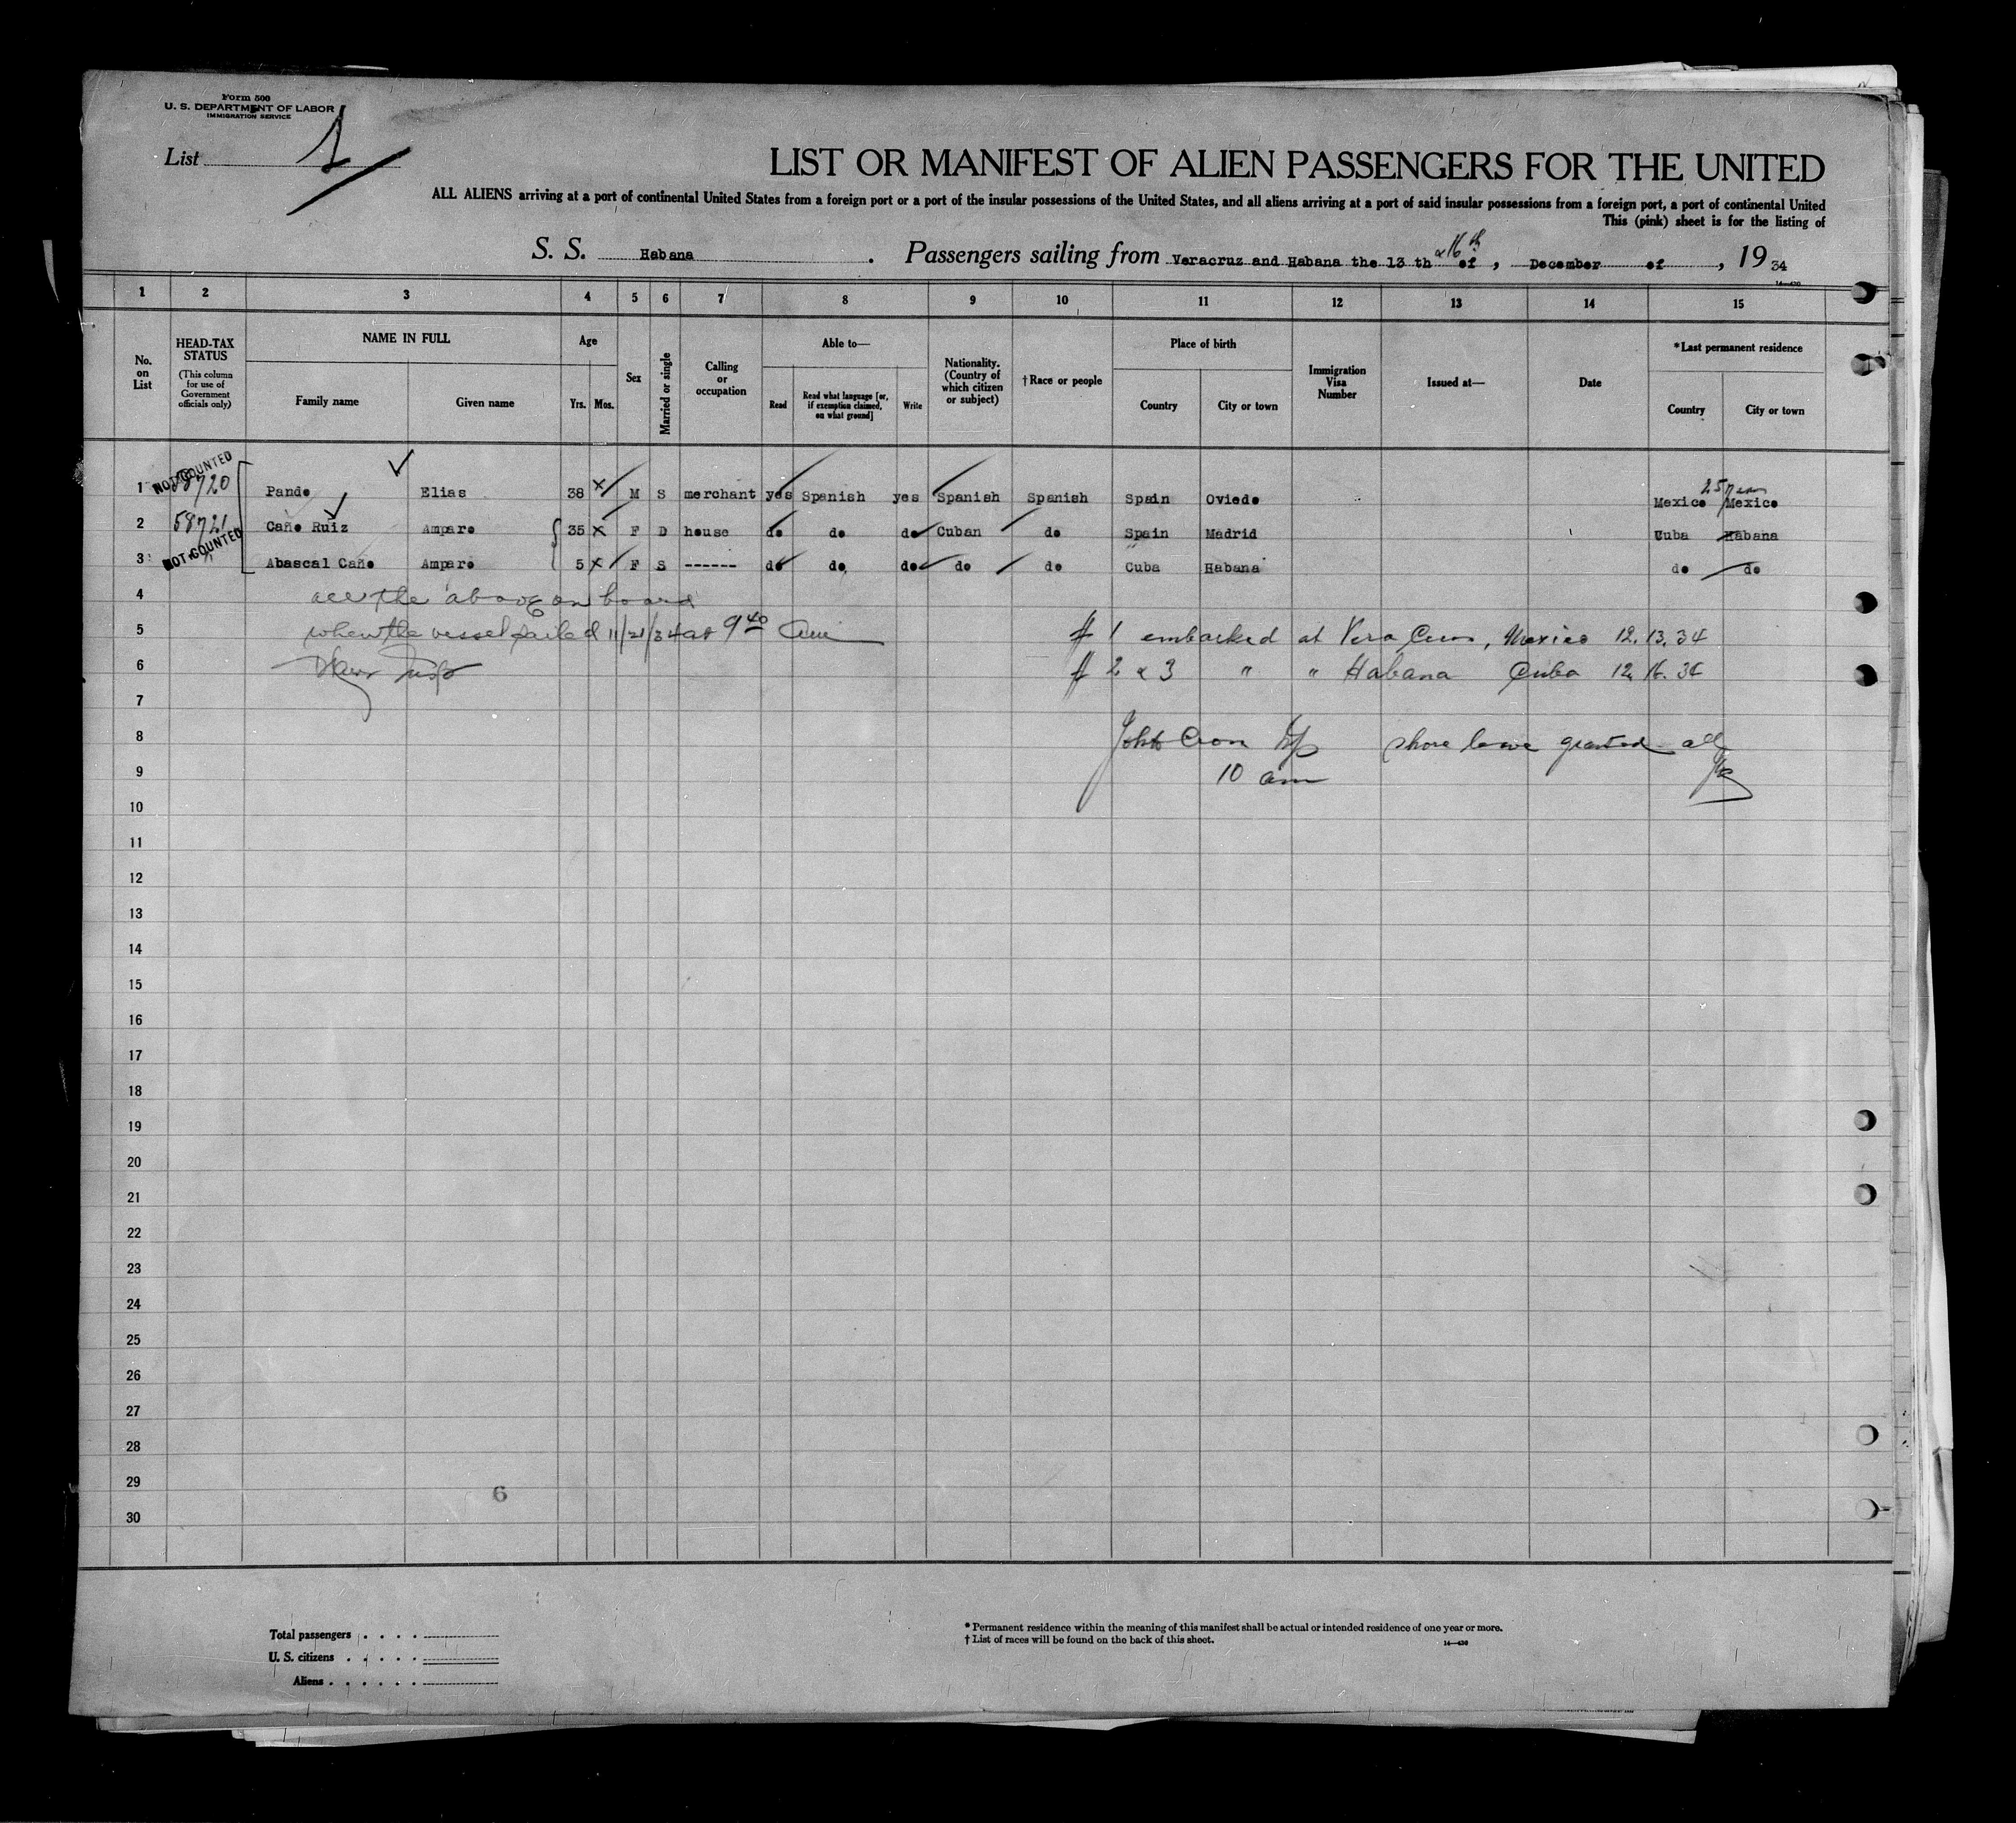 Form 500
U. S. DEPARTMENT OF LABOR
IMMIGRATION SERVICE
List 1
LIST OR MANIFEST OF ALIEN PASSENGERS FOR THE UNITED
ALL ALIENS arriving at a port of continental United States from a foreign port or a port of the insular possessions of the United States, and all aliens arriving at a port of said insular possessions from a foreign port, a port of continental United
This (pink) sheet is for the listing of
S. S. Habana . Passengers sailing from Veracruz and Habana the 13 th & 16th of , December of , 19 34
14—430
1 2 3 4 5 6 7 8 9 10 11 12 13 14 15
No. on List
HEAD-TAX STATUS
(This column for use of Government officials only)
NAME IN FULL
Family name Given name
Age
Yrs. Mos.
Sex
Married or single
Calling or occupation
Able to—
Read
Read what language [or, if exemption claimed, on what ground]
Write
Nationality. (Country of which citizen or subject)
†Race or people
Place of birth
Country City or town
Immigration Visa Number
Issued at—
Date
*Last permanent residence
Country City or town
NOT COUNTED
1 58720 Pando Elias 38 x M S merchant yes Spanish yes Spanish Spanish Spain Oviedo Mexico Mexico
2 58721 Caño Ruiz Amparo 35 x F D house do do do Cuban do Spain Madrid Cuba Habana
NOT COUNTED
3 Abascal Caño Amparo 5 x F S ------ do do do do do Cuba Habana do do
4 all the above on board
5 when the vessel sailed 11/21/34 at 9 40 am
# 1 embarked at Vera Cruz, Mexico 12.13.34
6
# 2 & 3 " " Habana Cuba 12.16.34
7
8 shore leave granted all
9 10 am
10
11
12
13
14
15
16
17
18
19
20
21
22
23
24
25
26
27
28
29
30
6
Total passengers . . . .
U. S. citizens . . . . .
Aliens . . . . . .
* Permanent residence within the meaning of this manifest shall be actual or intended residence of one year or more.
† List of races will be found on the back of this sheet.
14—430